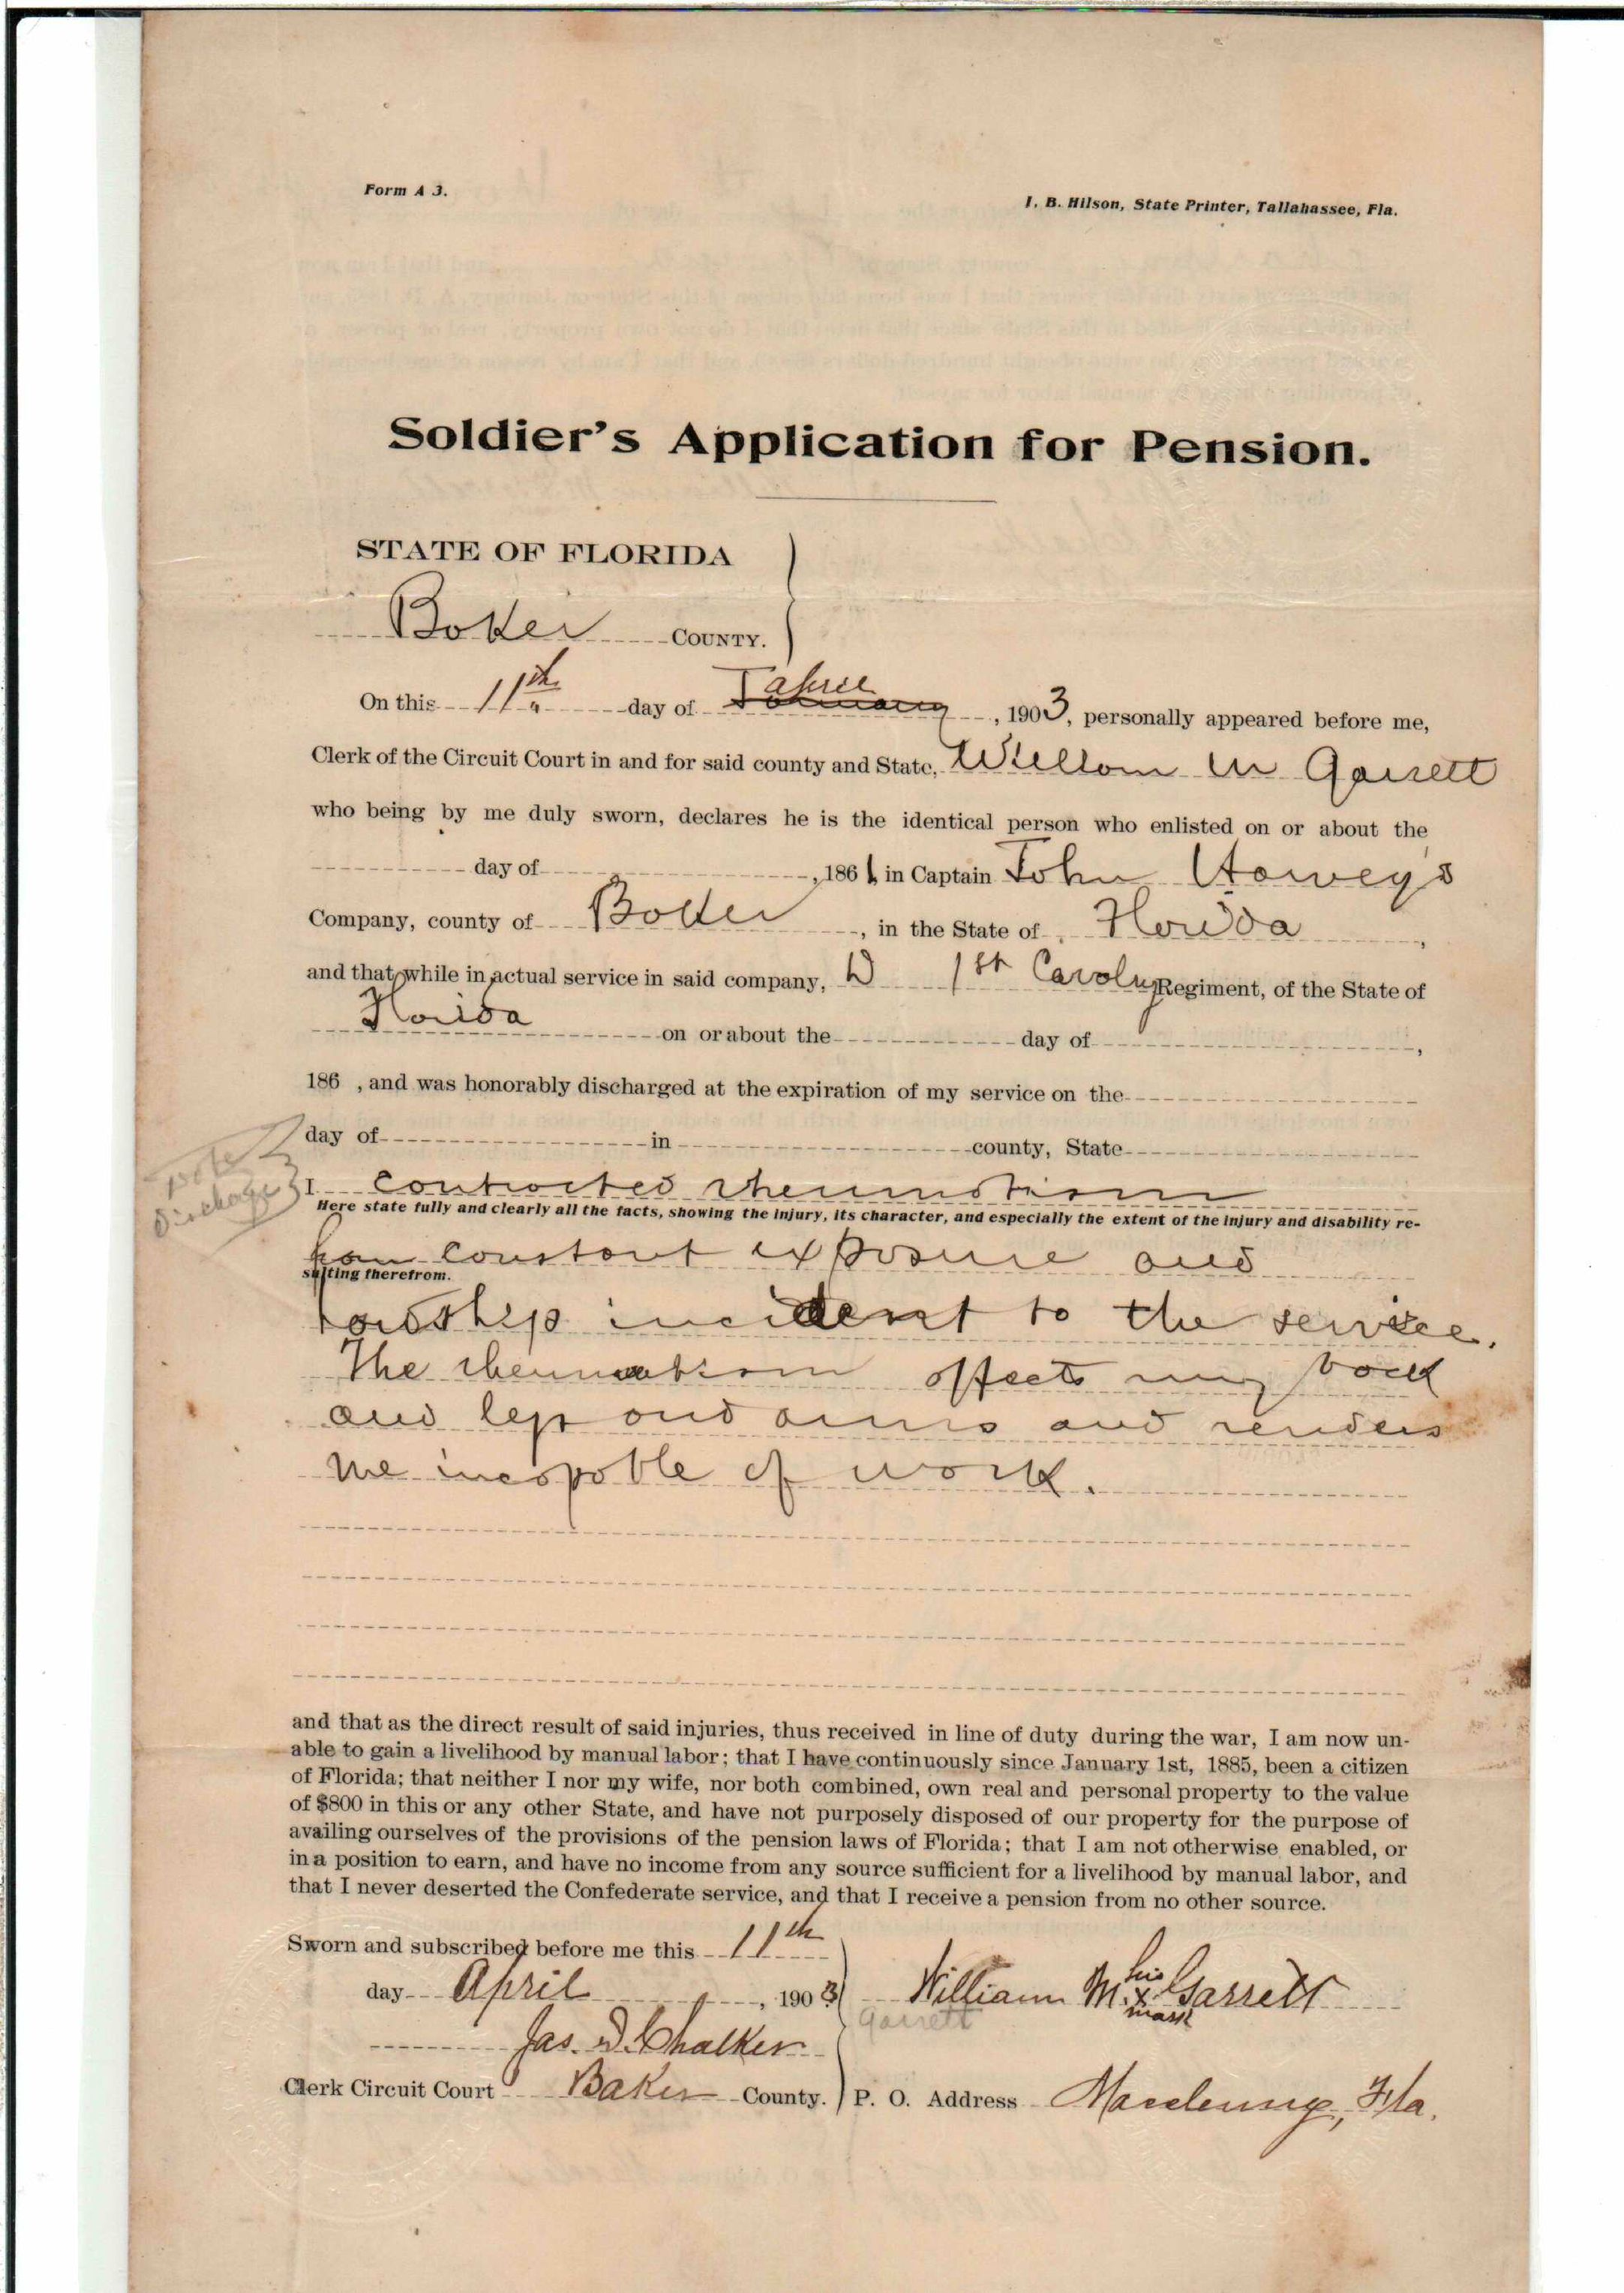 Form A 3.
I. B. Hilson, State Printer, Tallahassee, Fla.
Soldier's Application for Pension.
STATE OF FLORIDA
Baker COUNTY.
On this 11th day of April, 1903, personally appeared before me,
Clerk of the Circuit Court in and for said county and State, William M Garrett
who being by me duly sworn, declares he is the identical person who enlisted on or about the
day of , 1861, in Captain John
Company, county of Baker, in the State of Florida,
and that while in actual service in said company, D 1st Cavalry Regiment, of the State of
Florida on or about the day of ,
186 , and was honorably discharged at the expiration of my service on the
day of in county, State
note discharge
I contracted rheumatism
Here state fully and clearly all the facts, showing the injury, its character, and especially the extent of the injury and disability re-
from constant exposure and
sulting therefrom.
hardship incident to the service.
The rheumatism affects my back
and legs and arms and renders
me incapable of work.
and that as the direct result of said injuries, thus received in line of duty during the war, I am now un-
able to gain a livelihood by manual labor; that I have continuously since January 1st, 1885, been a citizen
of Florida; that neither I nor my wife, nor both combined, own real and personal property to the value
of $800 in this or any other State, and have not purposely disposed of our property for the purpose of
availing ourselves of the provisions of the pension laws of Florida; that I am not otherwise enabled, or
in a position to earn, and have no income from any source sufficient for a livelihood by manual labor, and
that I never deserted the Confederate service, and that I receive a pension from no other source.
Sworn and subscribed before me this 11th
day April, 1903
William M. his x mark Garrett
Garrett
Jas. D. Chalker
Clerk Circuit Court Baker County.
P. O. Address Macclenny, Fla.